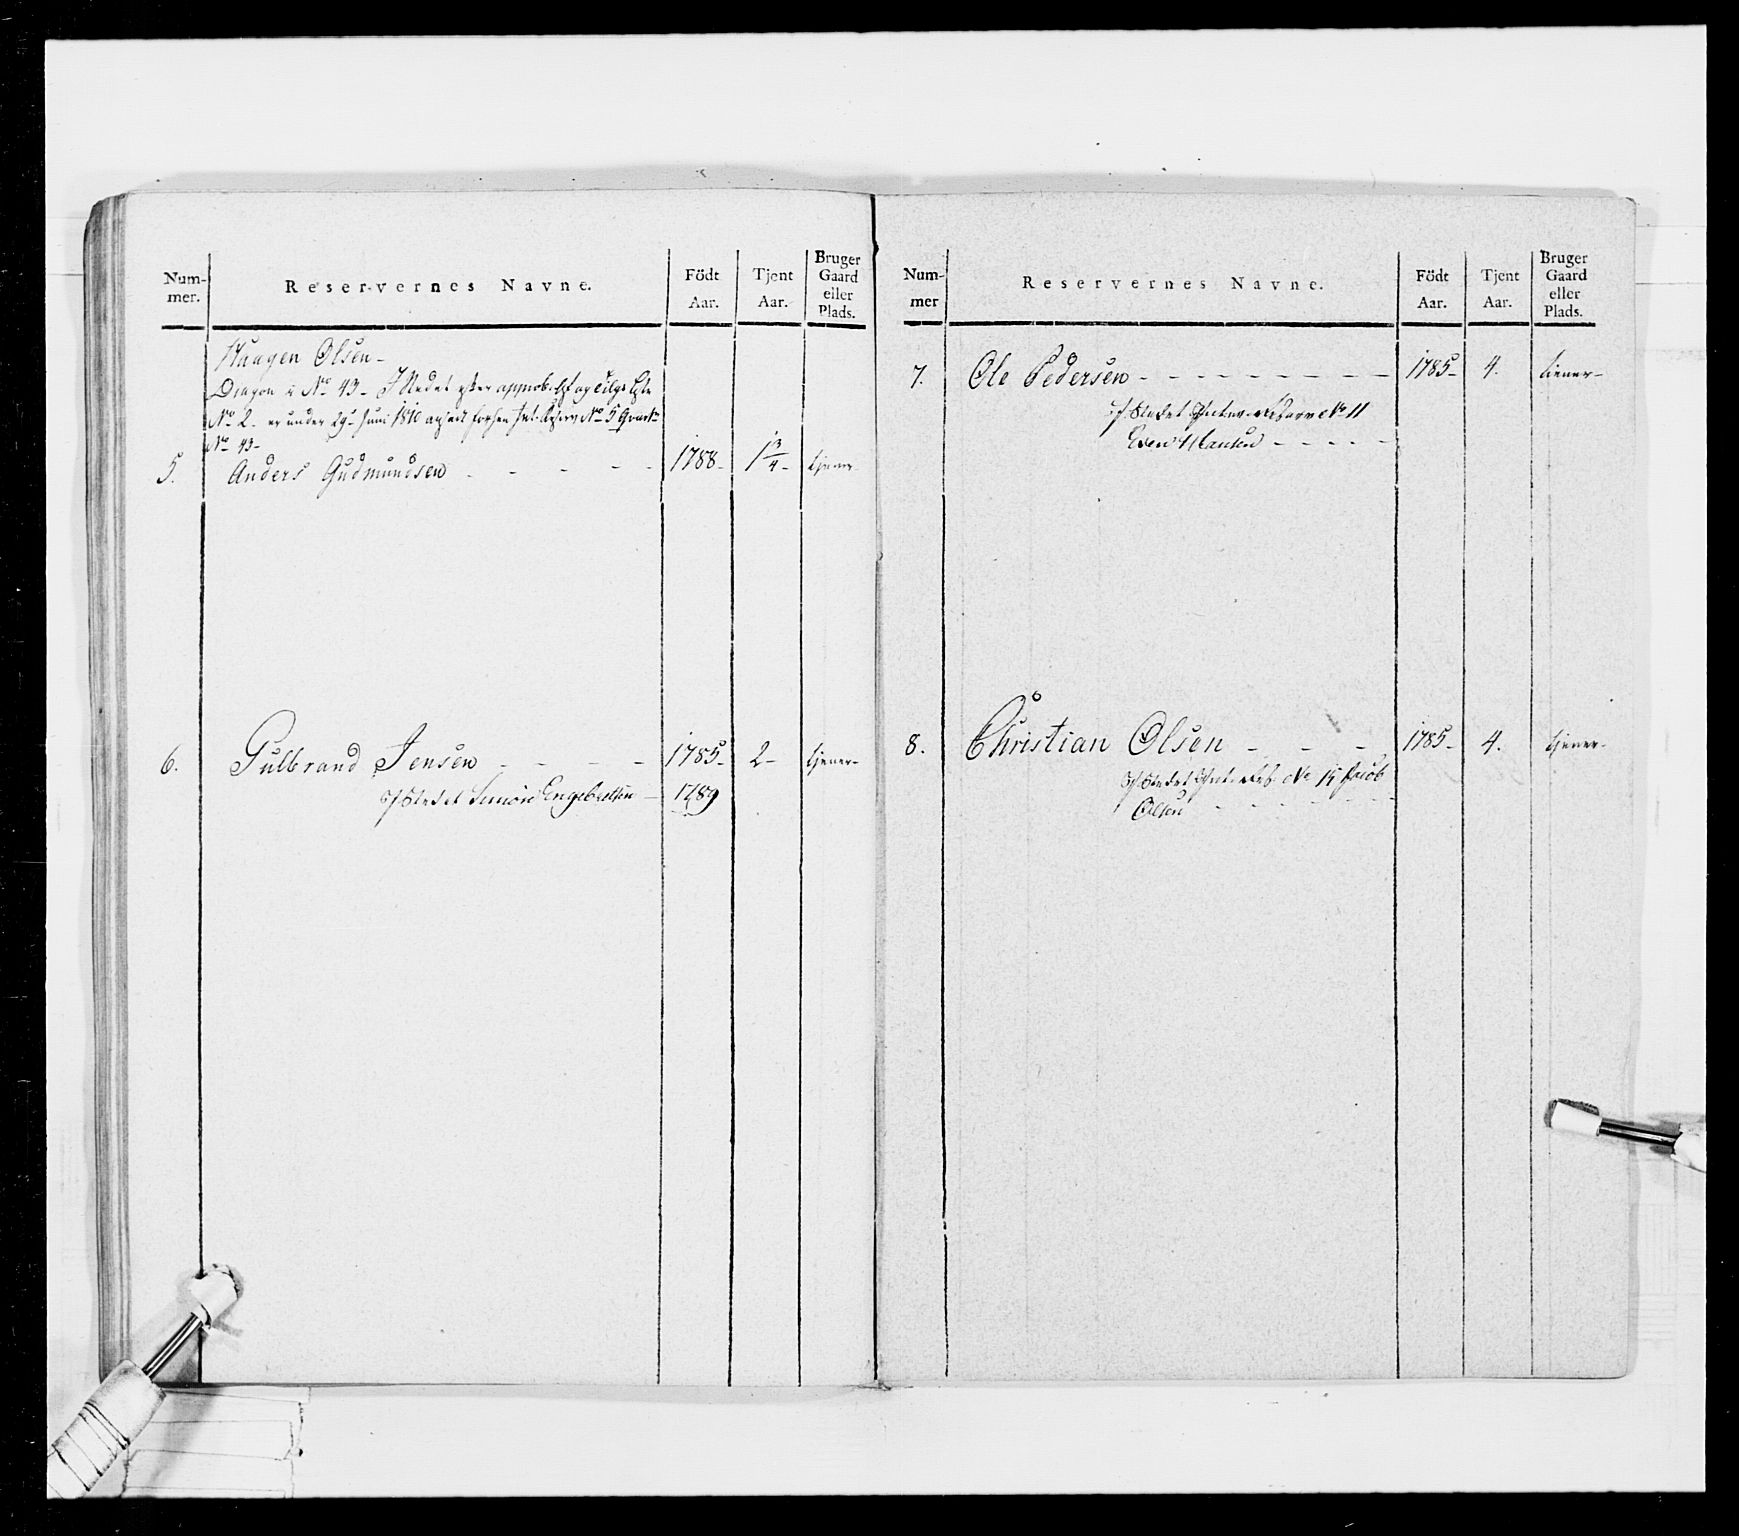 Num-
mer.
Reservernes Navne.
Födt
Aar.
Tjent
Aar.
Bruger
Gaard
eller
Plads.
Haagen Olsen -
Dragon i No 43 - I Stedet efter approb.
No 2 - er under 29 Juni 1810 No 5
No 43 -
5. Anders Gudmundsen - - - - - 1788 - 1 3/4 - tjener
6. Gulbrand Jensen - - - - 1785 - 2 - tjener -
I Stedet Simon Engebretsen - 1789
Num-
mer
Reservernes Navne.
Födt
Aar.
Tjent
Aar.
Bruger
Gaard
eller
Plads.
7. Ole Pedersen - - - - - - - - 1785 - 4. tiener -
I Stedet No 11
Even Hansen - - - - -
8. Christian Olsen - - - 1785 - 4. tjener -
I Stedet No 15 Jacob
Olsen - - - - -